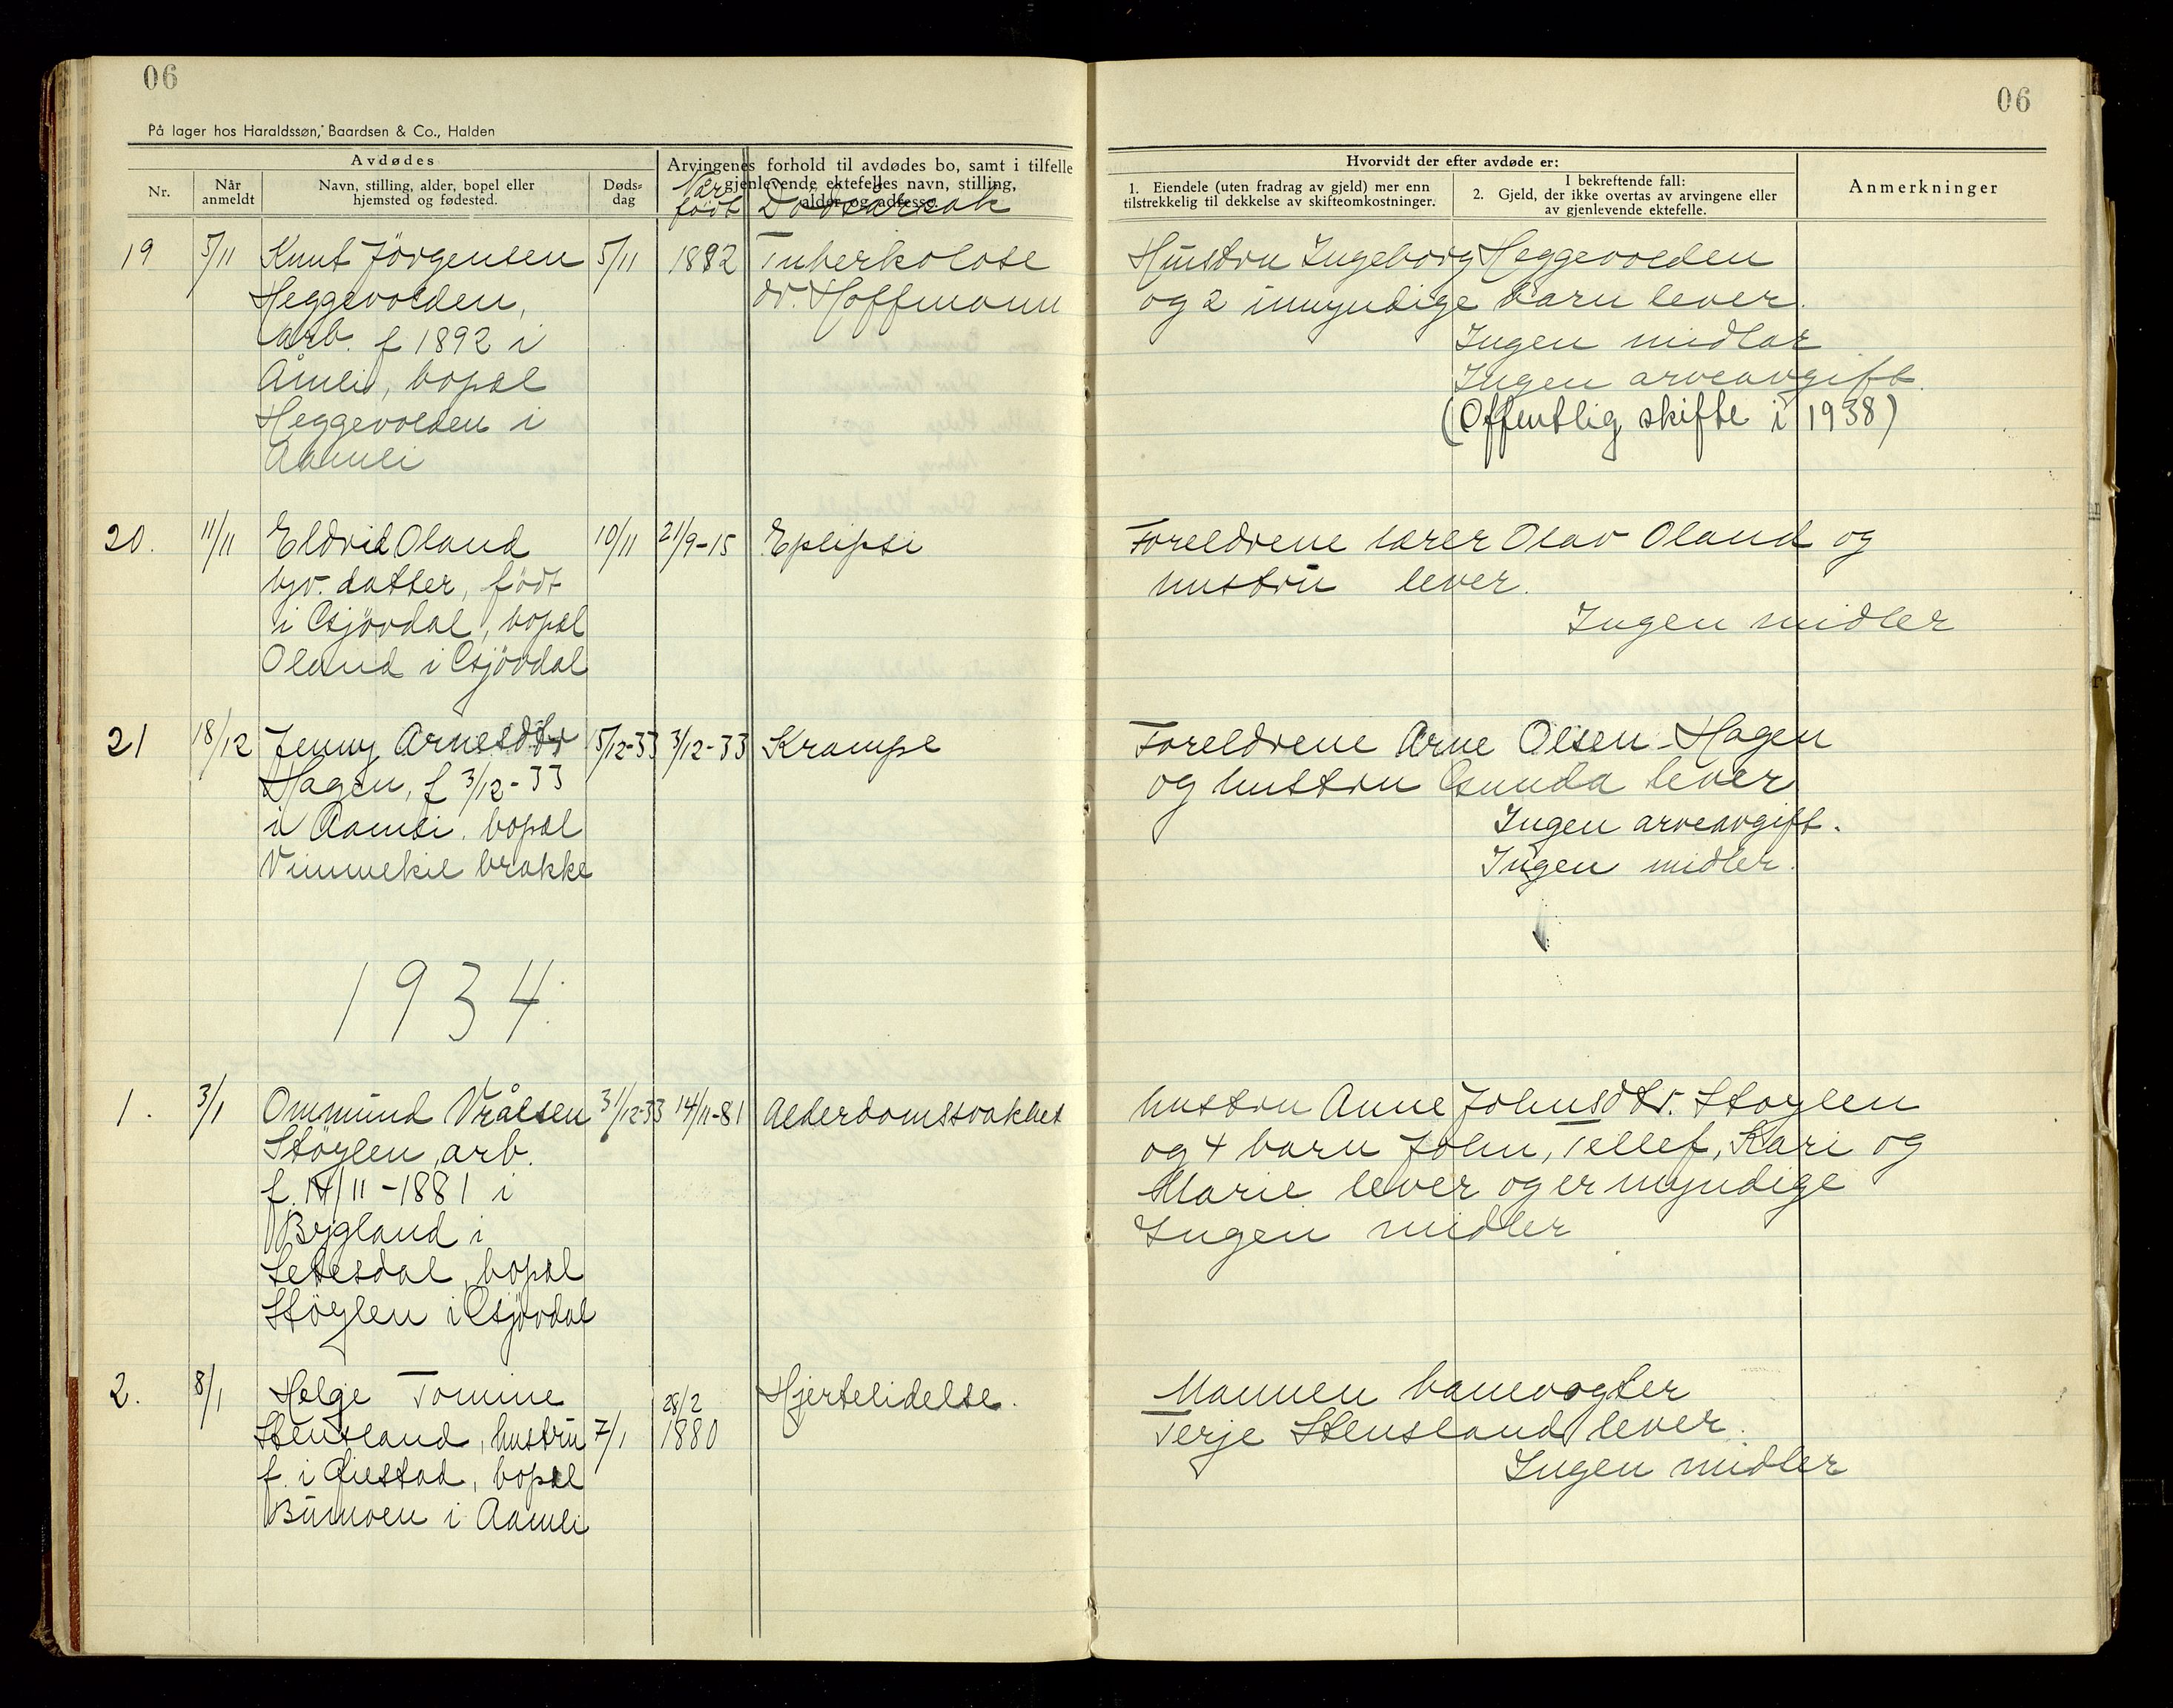 06
06
På lager hos Haraldssøn, Baardsen & Co., Halden
Avdødes
Nr.
Når anmeldt
Navn, stilling, alder, bopel eller hjemsted og fødested.
Døds-dag
Arvingenes forhold til avdødes bo, samt i tilfelle
gjenlevende ektefelles navn, stilling,
alder og adresse.
Når født
Dödsårsak
Hvorvidt der efter avdøde er:
1. Eiendele (uten fradrag av gjeld) mer enn
tilstrekkelig til dekkelse av skifteomkostninger.
I bekreftende fall:
2. Gjeld, der ikke overtas av arvingene eller
av gjenlevende ektefelle.
Anmerkninger
19 5/11 Knut Jörgensen 5/11 1892 Tuberkolose
Heggevolden, dr. Hoffmann
arb. f 1892 i
Åmli, bopæl
Heggevolden i
Aamli
Hustru Ingeborg Heggevolden
og 2 umyndige barn lever.
Ingen midlar
Ingen arveavgift.
(Offentlig skifte i 1938)
20. 11/11 Eldrid Oland 10/11 21/9-15 Eplipsi
ugv. datter, født
i Gjövdal, bopæl
Oland i Gjövdal
Foreldrene lærer Olav Oland og
hustru lever.
Ingen midler
21 18/12 Jenny Arnesdtr 5/12-33 3/12-33 Krampe
Hagen, f 3/12-33
i Aamli. bopæl
Vimmekil brakke
Foreldrene Arne Olsen Hagen
og hustru Gunda lever
Ingen arveavgift.
Ingen midler.
1934.
1. 3/1 Ommund Vrålsen 31/12-33 14/11-81 Alderdomssvakhet
Støylen, arb.
f. 14/11-1881 i
Bygland i
Setesdal, bopæl
Støylen i Gjövdal
hustru Anne Johnsdtr. Støylen
og 4 barn John, Tellef, Kari og
Marie lever og er myndige
Ingen midler
2. 8/1 Helge Tomine 28/2 Hjertelidelse.
Stensland, hustru 7/1 1880
f. i Øiestad, bopæl
Bumoen i Aamli
Mannen banevogter
Terje Stensland lever.
Ingen midler